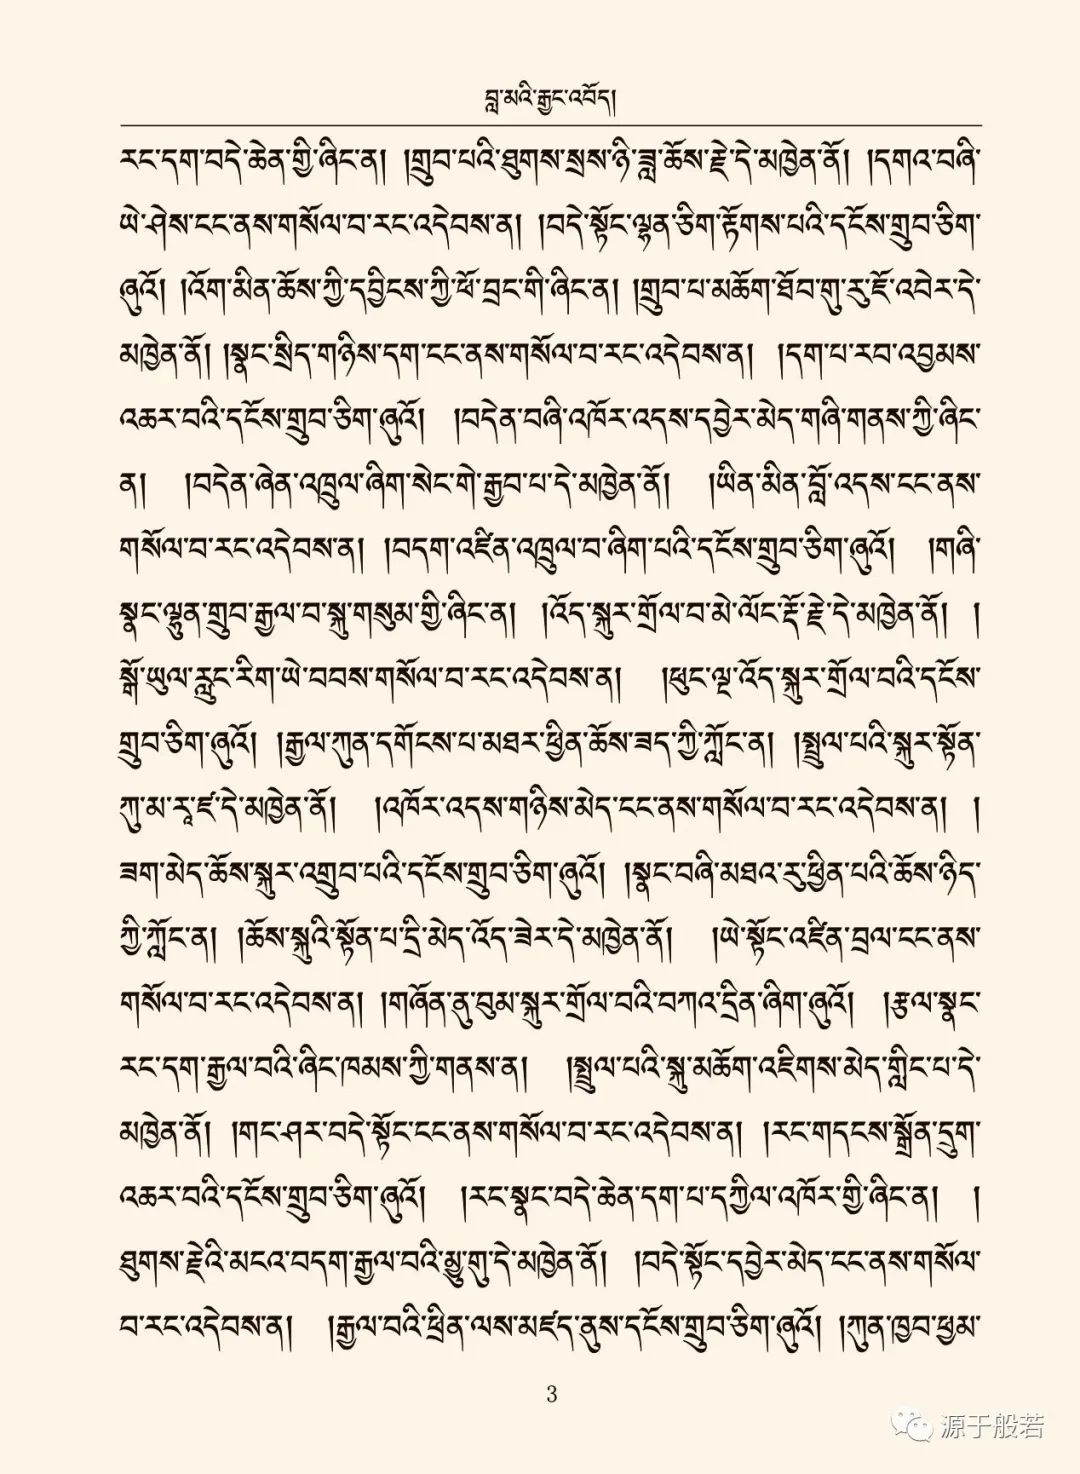 བླ་མའི་རྒྱང་འབོད།
རང་དག་བདེ་ཆེན་གྱི་ཞིང་ན། །གྲུབ་པའི་ཐུགས་སྲས་ཉི་ཟླ་ཆོས་རྗེ་དེ་མཁྱེན་ནོ། །དགའ་བཞི་
ཡེ་ཤེས་ངང་ནས་གསོལ་བ་རང་འདེབས་ན། །བདེ་སྟོང་ལྷན་ཅིག་རྟོགས་པའི་དངོས་གྲུབ་ཅིག་
ཞུའོ། །འོག་མིན་ཆོས་ཀྱི་དབྱིངས་ཀྱི་ཕོ་བྲང་གི་ཞིང་ན། །གྲུབ་པ་མཆོག་ཐོབ་གུ་རུ་ཇོ་འབེར་དེ་
མཁྱེན་ནོ། །སྣང་སྲིད་གཉིས་དག་ངང་ནས་གསོལ་བ་རང་འདེབས་ན། །དག་པ་རབ་འབྱམས་
འཆར་བའི་དངོས་གྲུབ་ཅིག་ཞུའོ། །བདེན་བཞི་འཁོར་འདས་དབྱེར་མེད་གཞི་གནས་ཀྱི་ཞིང་
ན། །བདེན་ཞེན་འཁྲུལ་ཞིག་སེང་གེ་རྒྱབ་པ་དེ་མཁྱེན་ནོ། །ཡིན་མིན་བློ་འདས་ངང་ནས་
གསོལ་བ་རང་འདེབས་ན། །བདག་འཛིན་འཁྲུལ་བ་ཞིག་པའི་དངོས་གྲུབ་ཅིག་ཞུའོ། །གཞི་
སྣང་ལྷུན་གྲུབ་རྒྱལ་བ་སྐུ་གསུམ་གྱི་ཞིང་ན། །འོད་སྐུར་གྲོལ་བ་མེ་ལོང་རྡོ་རྗེ་དེ་མཁྱེན་ནོ། །
སྒོ་ཡུལ་རླུང་རིག་ཡེ་བབས་གསོལ་བ་རང་འདེབས་ན། །ཕུང་ལྔ་འོད་སྐུར་གྲོལ་བའི་དངོས་
གྲུབ་ཅིག་ཞུའོ། །རྒྱལ་ཀུན་དགོངས་པ་མཐར་ཕྱིན་ཆོས་ཟད་ཀྱི་ཀློང་ན། །སྤྲུལ་པའི་སྐུར་སྟོན་
ཀུ་མ་རཱ་ཛ་དེ་མཁྱེན་ནོ། །འཁོར་འདས་གཉིས་མེད་ངང་ནས་གསོལ་བ་རང་འདེབས་ན། །
ཟག་མེད་ཆོས་སྐུར་འགྲུབ་པའི་དངོས་གྲུབ་ཅིག་ཞུའོ། །སྣང་བཞི་མཐའ་རུ་ཕྱིན་པའི་ཆོས་ཉིད་
ཀྱི་ཀློང་ན། །ཆོས་སྐུའི་སྟོན་པ་དྲི་མེད་འོད་ཟེར་དེ་མཁྱེན་ནོ། །ཡེ་སྟོང་འཛིན་བྲལ་ངང་ནས་
གསོལ་བ་རང་འདེབས་ན། །གཞོན་ནུ་བུམ་སྐུར་གྲོལ་བའི་བཀའ་དྲིན་ཞིག་ཞུའོ། །རྩལ་སྣང་
རང་དག་རྒྱལ་བའི་ཞིང་ཁམས་ཀྱི་གནས་ན། །སྤྲུལ་པའི་སྐུ་མཆོག་འཇིགས་མེད་གླིང་པ་དེ་
མཁྱེན་ནོ། །གང་ཤར་བདེ་སྟོང་ངང་ནས་གསོལ་བ་རང་འདེབས་ན། །རང་གདངས་སྒྲོན་དྲུག་
འཆར་བའི་དངོས་གྲུབ་ཅིག་ཞུའོ། །རང་སྣང་བདེ་ཆེན་དག་པ་དཀྱིལ་འཁོར་གྱི་ཞིང་ན། །
ཐུགས་རྗེའི་མངའ་བདག་རྒྱལ་བའི་མྱུ་གུ་དེ་མཁྱེན་ནོ། །བདེ་སྟོང་དབྱེར་མེད་ངང་ནས་གསོལ་
བ་རང་འདེབས་ན། །རྒྱལ་བའི་ཕྲིན་ལས་མཛད་ནུས་དངོས་གྲུབ་ཅིག་ཞུའོ། །ཀུན་ཁྱབ་ཕྱམ་
3
源于般若